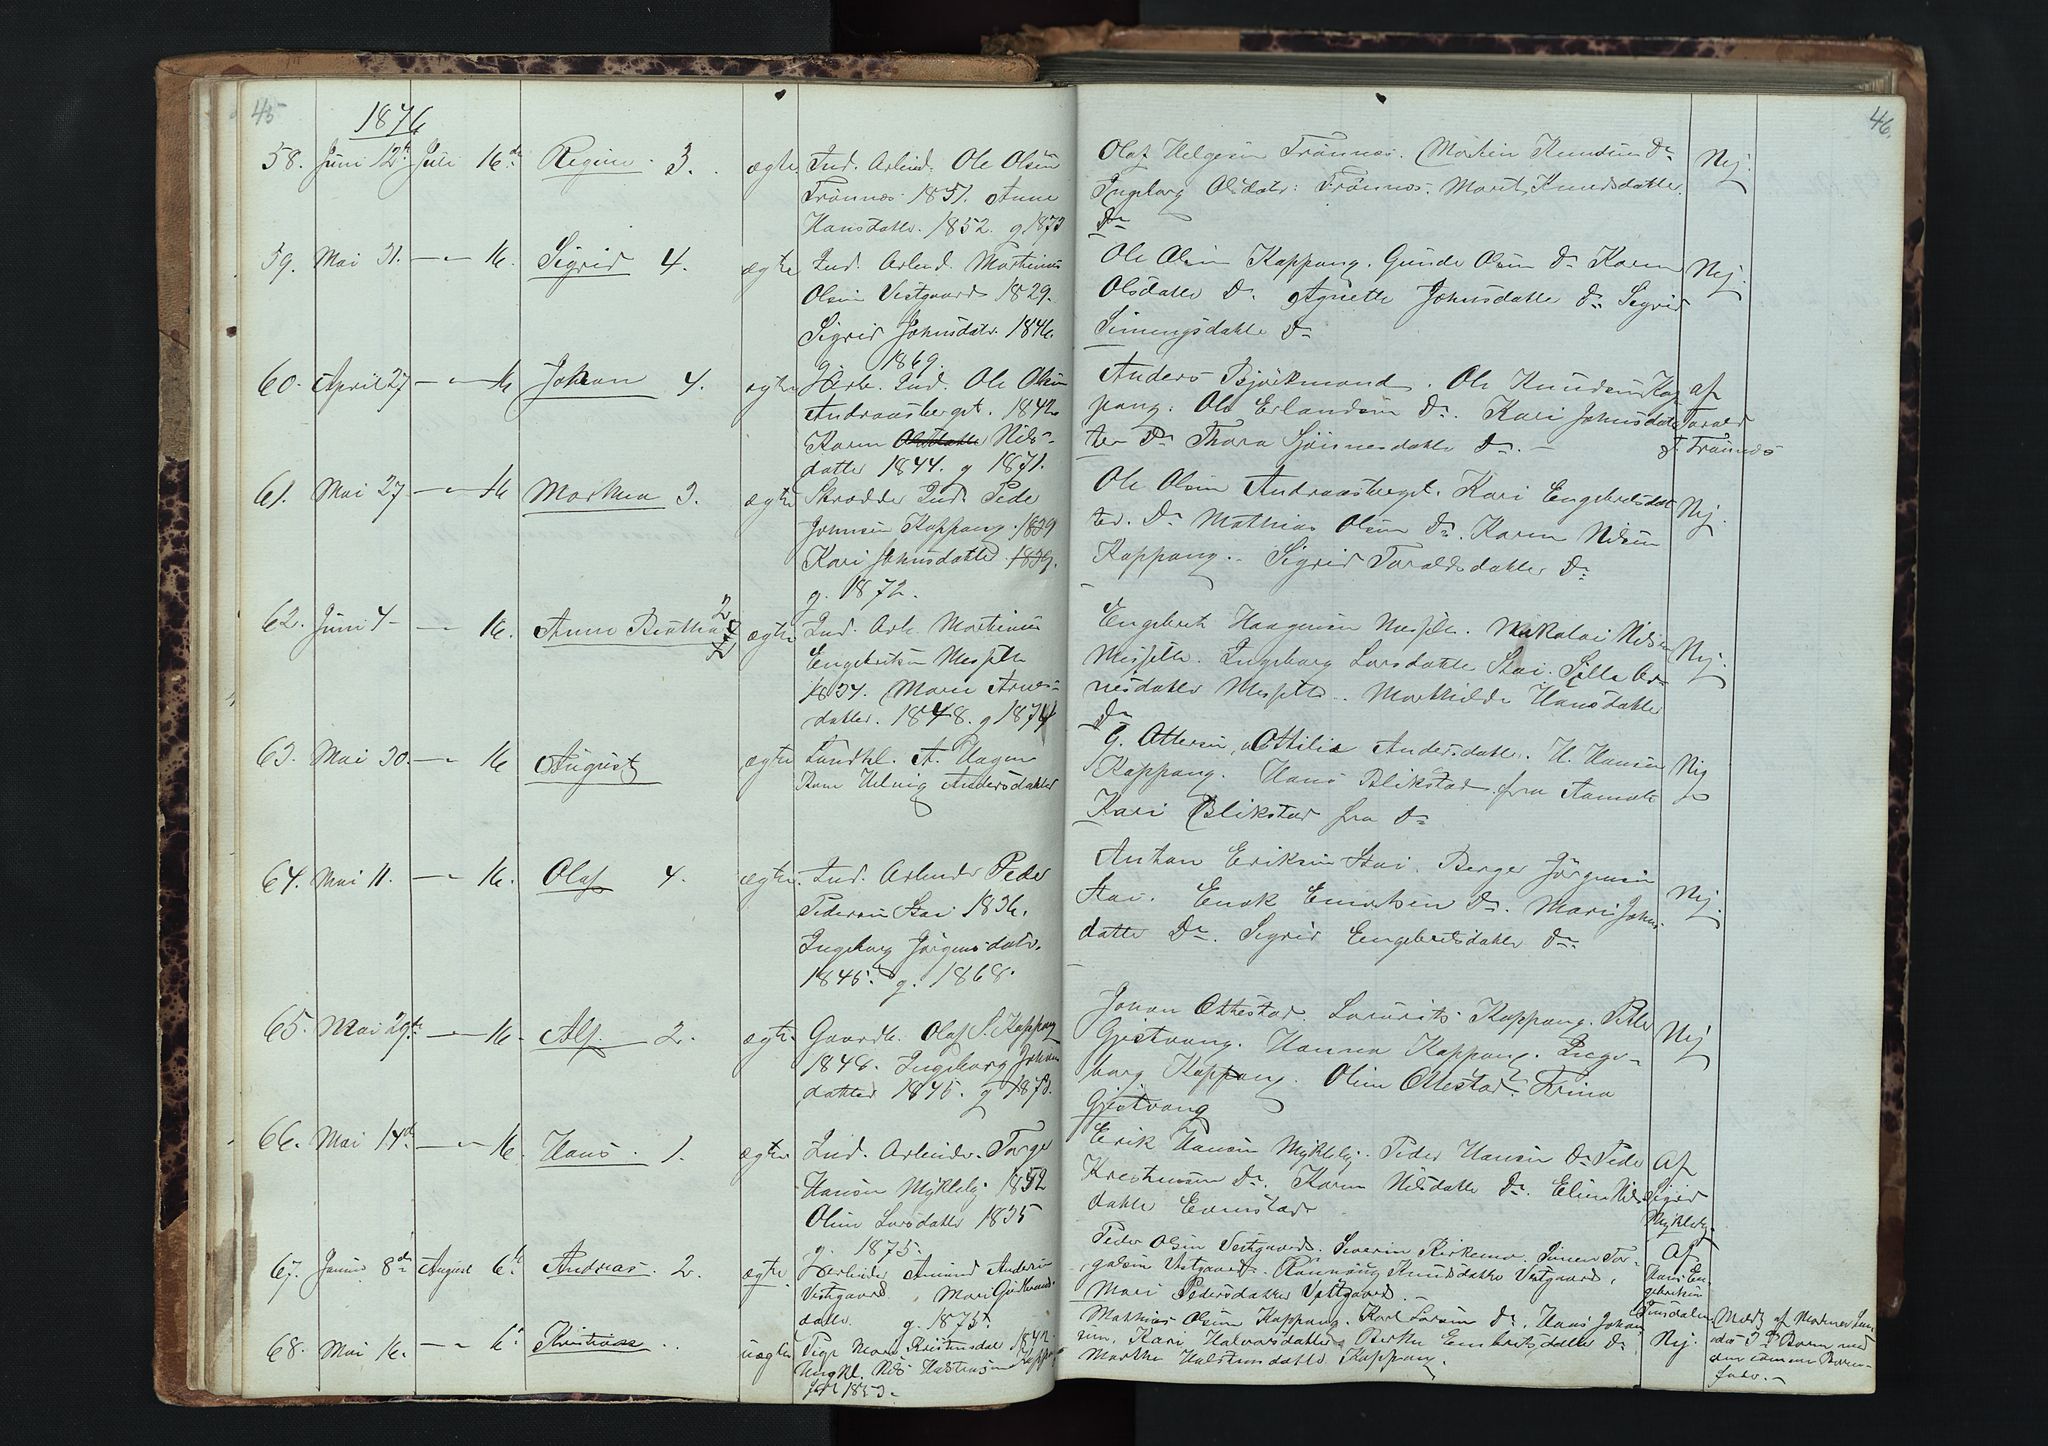 45
1876
58. Juni 12te Juli 16de Regine 3. ægte Ind. Arbeid. Ole Olsen
Trønnæs 1851. Anne
Hansdatter. 1852. g 1873
Olaf Helgesen Trønnes. Morten Knudsen Do Nej.
Ingeborg Olsdatr: Trønnes. Marit Knudsdatter
Do
59. Mai 31. — " — 16. Sigrid 4. ægte Ind. Arbeid. Martinus
Olsen Vestgaard 1829.
Sigrid Johnsdatr. 1846.
g. 1869.
Ole Olsen Koppang. Gunder Olsen Do Karen Nej.
Olsdatter Do. Agnette Johnsdatter Do. Sigrid
Simensdatter Do
60. April 27 — " — 16 Johan 4. ægte Ind. Ole Olsen
Andraasberget. 1842
Karen Nils-
datter 1844. g 1871.
Anders Bjørkmand. Ole Knudsen Kop af
pang. Ole Erlandsen Do. Kari Johnsdat Tarald
ter Do Thora Do. — Trønnæs
61. Mai 27 — " — 16 Marthea 3. ægte Skrædder Ind. Peder
Johnsen Koppang. 1839
Kari Johnsdatter 1839.
g. 1872.
Ole Olsen Andraasberget. Kari Engebretsdat Nej.
ter. Do Mathias Olsen Do. Karen Nilsen
Koppang. Sigrid Taraldsdatter Do
62. Juni 4 — " — 16. Anne Beathe 2 ægte Ind. Arb. Martinus
Engebretsen Messelt
1834. Mari Arnes-
datter. 1848. g 1874
Engebret Haagensen Messelt. Nikolai Nilsen Nej.
Messelt. Ingeborg Larsdatter Stai. Ar-
nesdatter Messelt. Marthilde Hansdatter
Do
63. Mai 30. — " — 16 August ægte Landhl. A. Hagen
Helvig Andersdatter
G. Ottersen, Othilie Andersdatter. H. Hansen Nej
Koppang. Hans Blikstad fra Aamot
Kari Blikstad fra Do
64. Mai 11. — " — 16. Olaf 4. ægte. Ind. Arbeider Peder
Pedersen Stai 1836.
Ingeborg Jørgensdatr.
1845. g. 1868.
Anton Eriksen Stai. Berger Jørgensen Nej.
Stai. Enok Do. Mari Johns
datter Do. Sigrid Engebretsdatter Do.
65. Mai 29te — " — 16. Alf 2. ægte. Gaardb. Olaf S. Koppang
1848. Ingeborg Johan
datter 1845. g 1873.
Johan Ottestad. Laurits Koppang. Nej
Gjestvang. Hanna Koppang. Inge-
borg Koppang. Oline Ottestad. Trina
Gjestvang
66. Mai 14de — " — 16. Hans. 1. ægte Ind. Arbeider. Torger
Hansen Mykleby 1852
Oline Larsdatter 1835
g. 1875.
Erik Hansen Mykleby. Peder Hansen Do Peder Af
Kristensen Do. Karen Nilsdatter Do. Eline Nils Sigrid
datter Evenstad Mykleby.
67. Januar 8de August 6te Andreas. 2. ægte. Amund Andersen
Vestgaard Mari Gudbrands
datter. g. 1875.
Peder Olsen Vestgaard. Severin Kirkemo. Simen Tor- Af
galsen Vestgaard. Rønnaug Knudsdatter Vestgaard. Hans En-
Mari Pedersdatter Vestgaard. — gebretsen
68. Mai 16. — " — 6te Kristian .. uægte Pige Mari Kristensdat 1842.
Ungkl. Nils Halstensen Koppang
født 1853.
Mathias Olsen Koppang. Karl Larsen Do. Hans Johan Nej.
sen. Kari Halvorsdatter Berthe Embretsdatter Do
Marthe Halstensdatter Koppang.
Meldt af Moderen
46.